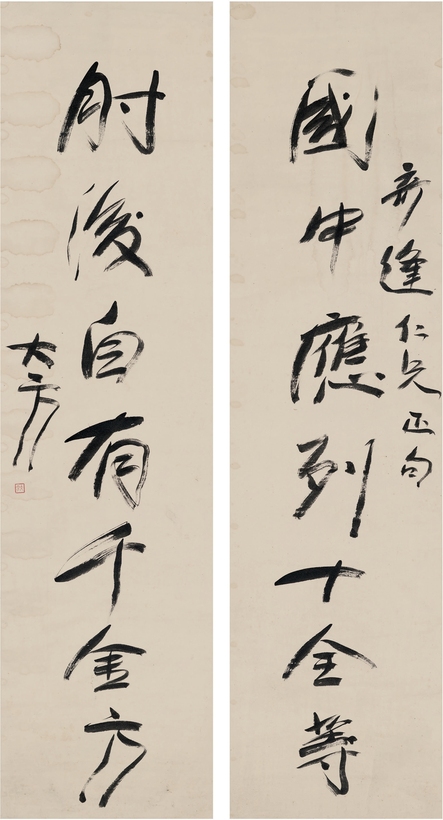 逢仁兄正句
國中應列十全等
肘後自有千金方
大方